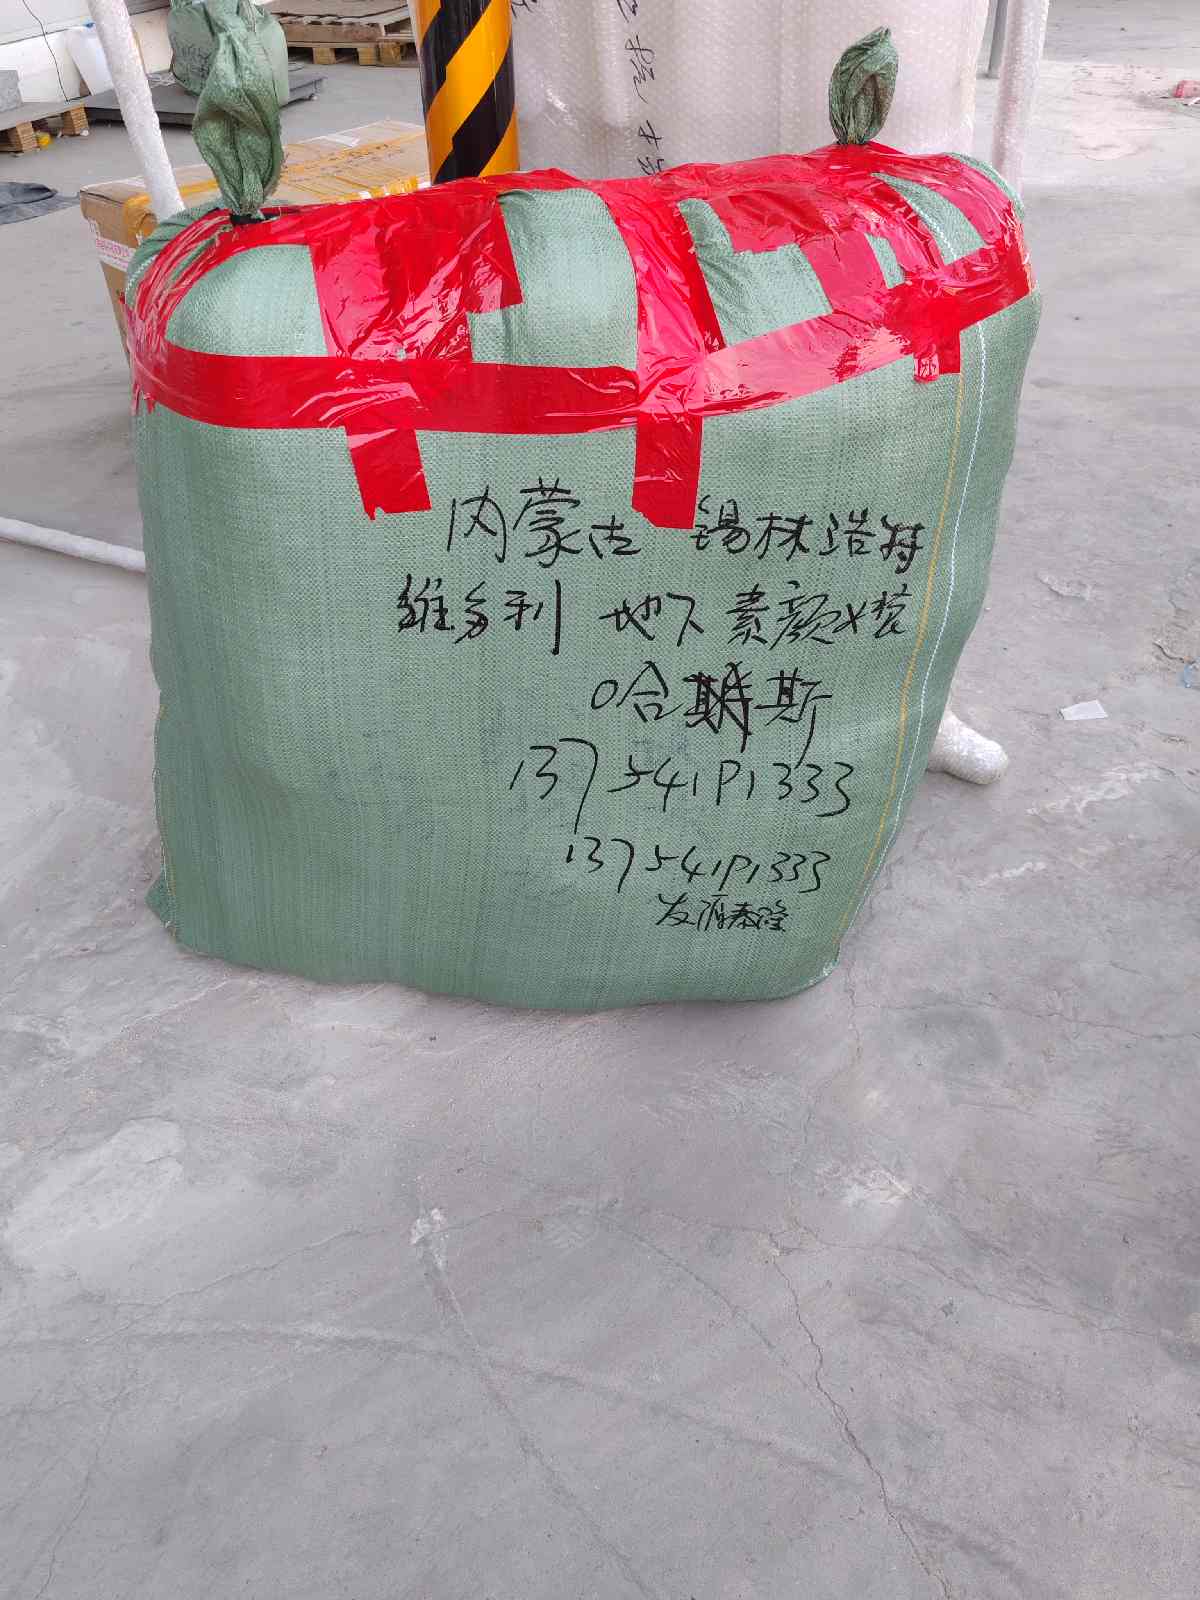 内蒙古 锡林浩特
维多利 地下素颜女装
哈斯
13754191333
13754191333
发源泰隆